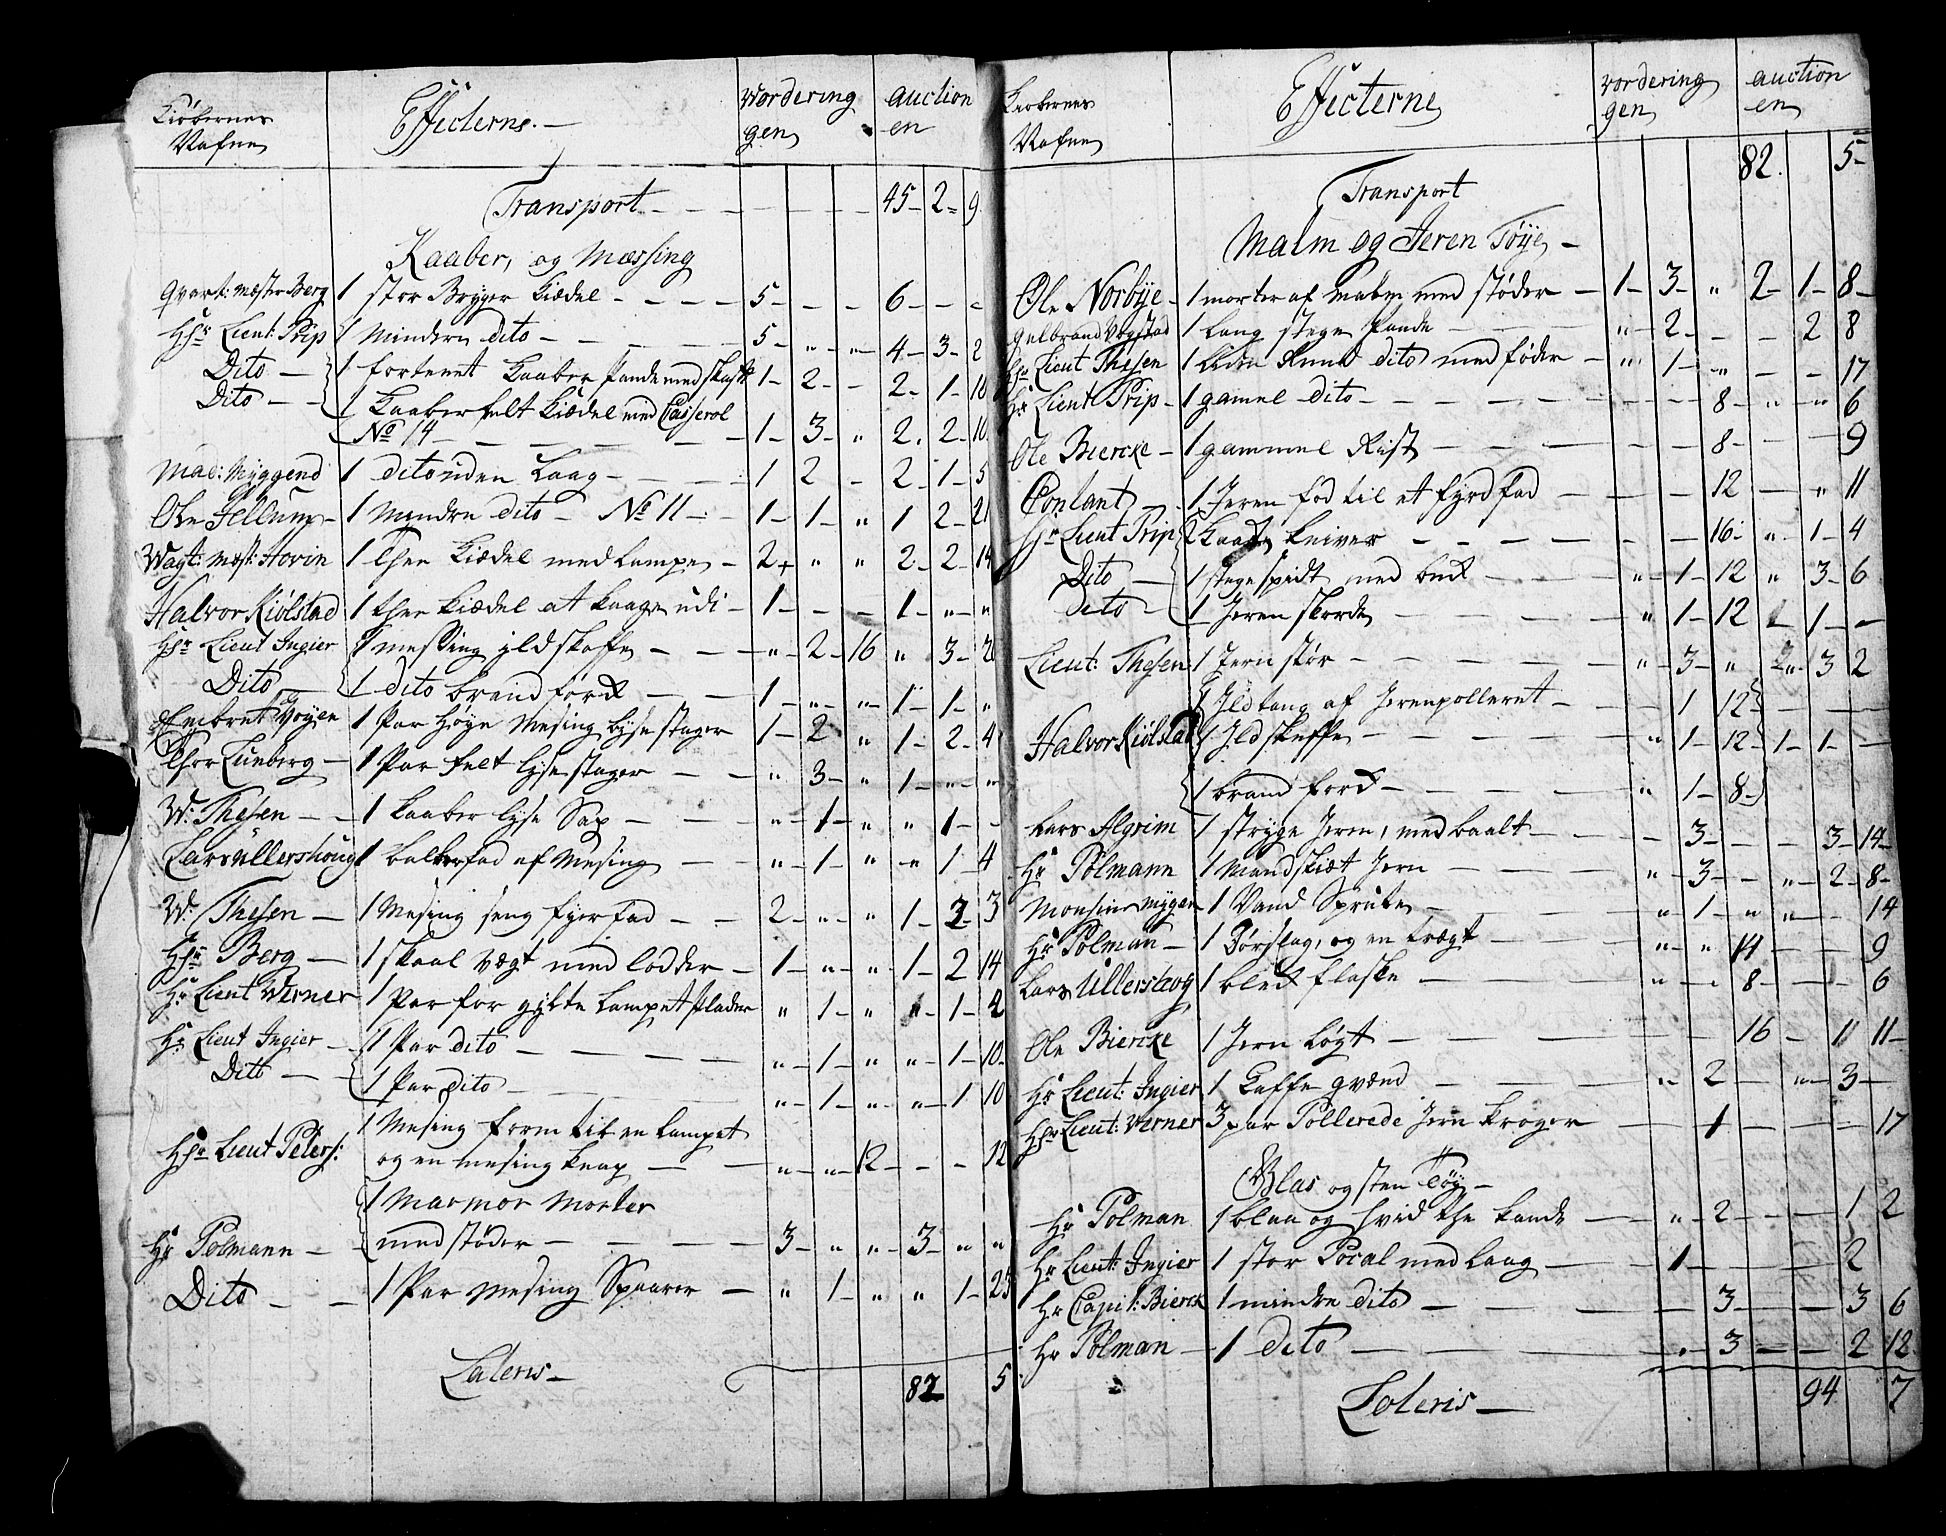 Kiøbernes Nafne Effecterne. — Vorderingen auctionen
Transport — — — 45 — 2 — 9
Kaaber, og Messing
Qvart: mester Berg 1 stor Brygger Kiedel — — — 5 — — — 6 — — —
Hr Lieut: Prip 1 Mindern dito — — — 5 — „ — „ 4 — 3 — 2
Dito — 1 fortenet Kaaber Pande med skaft 1 — 2 — — 2 — 1 — 10
Dito — — 1 Kaaber felt Kiedel med Casserol
No 14 — — — 1 — 3 — „ 2 . 2 — 10
Mal: Myggend 1 dito uden Laag — — 1 2 — 2 — 1 — 5
Ole Jellum — 1 Mindre dito — No 11 — 1 — 1 — „ 1 2 — 21
Wagt: mest: Hovin 1 Thee Kiedel med Lampe — 2 „ „ 2 — 2 — 14
Halvor Kiølstad 1 thee Kiedel at kaage udi — 1 — — — 1 — „ — „
Hr Lieut Ingier 1 messing ildskaffe — — „ — 2 — 16 „ 3 — 20
Dito — 1 dito brandfork — — 1 — „ — „ — 1 — 1 — „
Embret Woyen 1 Par Høye Mesing Lyse stager 1 — 2 „ 1 — 2 — 4
Thor Lunberg — 1 Par felt lyse stager — — „ 3 — „ 1 — „ — „
W: Thesen — — 1 Kaaber lyse Sax — — „ — 1 — „ „ 1 — —
Lars Ullershoug 1 balberfad af Mesing — „ — 1 — „ „ 1 4
W: Thesen — 1 Mesing seng fyerfad — — 2 — „ — „ 1 — 2 — 3
Hr Berg — 1 skaal vegt med lodder — 1 — „ — „ — 1 — 2 14
Hr Lieut Werner 1 Par for gylte Lampet Plader „ 1 — „ „ — 1 — 4
Hr Lieut Ingier — 1 Par dito — — — „ — 1 — „ „ — 1 — 10
Ditt — — 1 Par dito — — — „ — 1 — „ — „ — 1 10
Hr Lieut Peters: 1 Mesing form til en Lampet
og en mesing knap — — „ — „ — 12 — — — 12
1 Marmor Morter
Hr Polmann — med støder — — — 3 — „ „ — 3 — „ „
Dito — — 1 Par Mesing Spaarer — „ 1 — „ „ 1 — 25
Lateris — 82 5
Kiøbernes Nafne Effecterne Vorderingen auctionen
Transport 82. 5 —
Malm og Jeren Tøye —
Ole Norbye — 1 morter af Malm med støder — 1 — 3 — „ 2 — 1 — 8 —
Gulbrand Vogstad 1 Lang stege Pande — — „ — 2 — — — 2 8
Hr Lieut Thesen 1 Liden Rund dito med føder — „ 1 — „ — — 17
Hr Lieut Prip — 1 gamel dito — — — 8 — „ — „ 6
Ole Biercke — 1 gammel Rist — — — 8 — — — 9
Conlant — 1 Jeren fod til et fyrdfad — — 12 — „ 11
Hr Lieut Prip 2 kniver — — — 16 — „ — 1 — 4
Dito — 1 stegespidt med buk — — „ — 1 — 12 „ 3 — 6
Dito — 1 Jeren skorde — — „ 1 — 12 1 — —
Lieut: Thesen 1 Jern stør — — „ — 3 — „ „ 3 2
1 Ildtang af Jeren polleret — — 1 12
Halvor Kiølstad 1 Ildskuffe — — „ 1 — 12 — 1 — 1 — —
1 brand fork — — „ 1 — 8 —
Lars Algrim 1 stryge Jern, med baalt — — 3 — — — 3 — 14 —
Hr Polmann 1 Mandskiæt Jern — „ — 3 — — „ — 2 — 8 —
Monsieur Mygen 1 Vand Sprute — „ 1 — „ „ — 14
Hr Polman — 1 Dørslag, og en tragt — „ — „ 14 — — 9
Lars Ullershoug 1 blek flaske — „ — . 8 — — — 6
Ole Biercke 1 Jern Løgt — — 16 — 11 11 —
Hr Lieut: Ingier 1 Caffe qvænd — — „ — 2 — „ — 3 —
Hr Lieut: Verner 3 par Pollerede Jern kroger — 1 — — — 17
Glas og sten Tøy —
Hr Polman 1 blaa og hvid the kande — „ — 2 — — — 1 2
Hr Lieut: Ingier 1 stor Pocal med Laag — — 1 — — 2
Hr Capit: Bierck 1 mindre dito — — 3 — — — 3 6
Hr Polman — 1 dito — — . — 3 — — 2 12
Lateris — 94 7